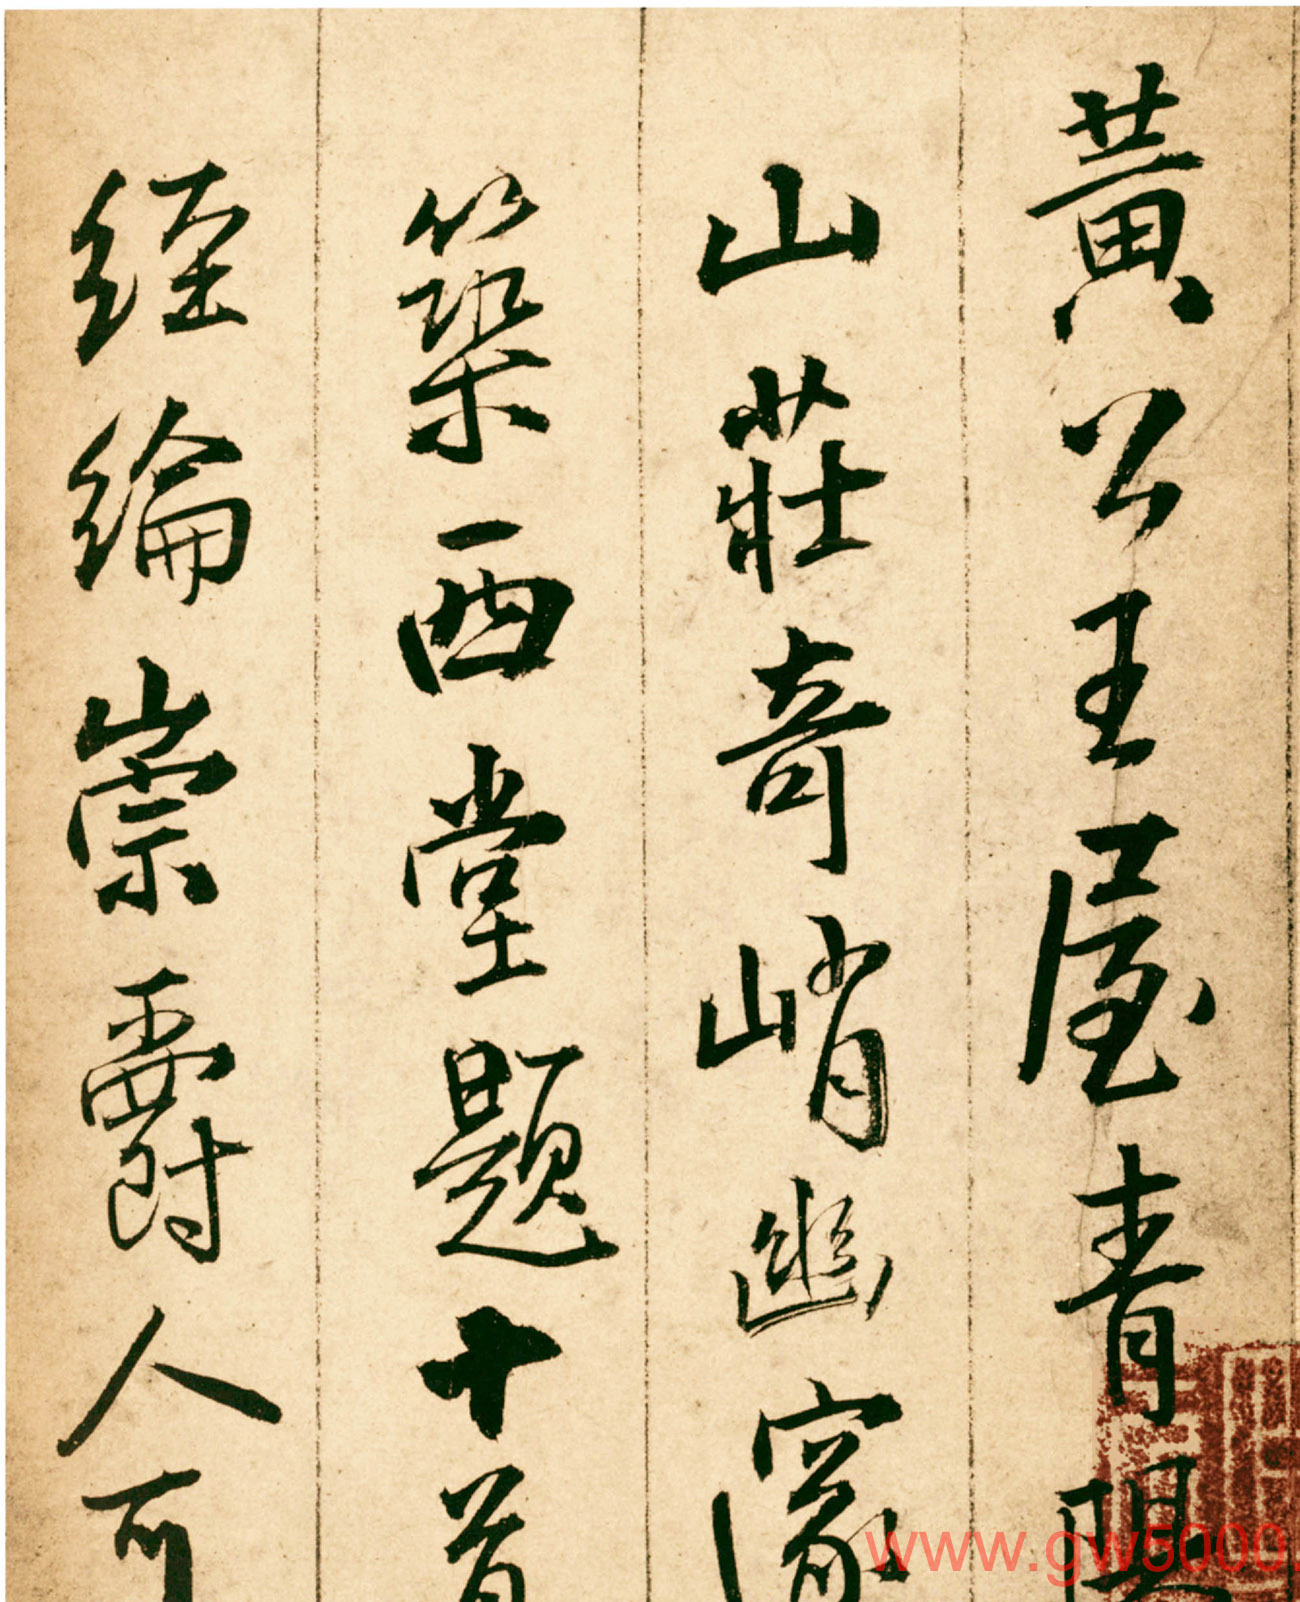 黄公王屋青
山莊奇峭幽
築西堂題十首
經綸崇爵人可
www.gw5000.